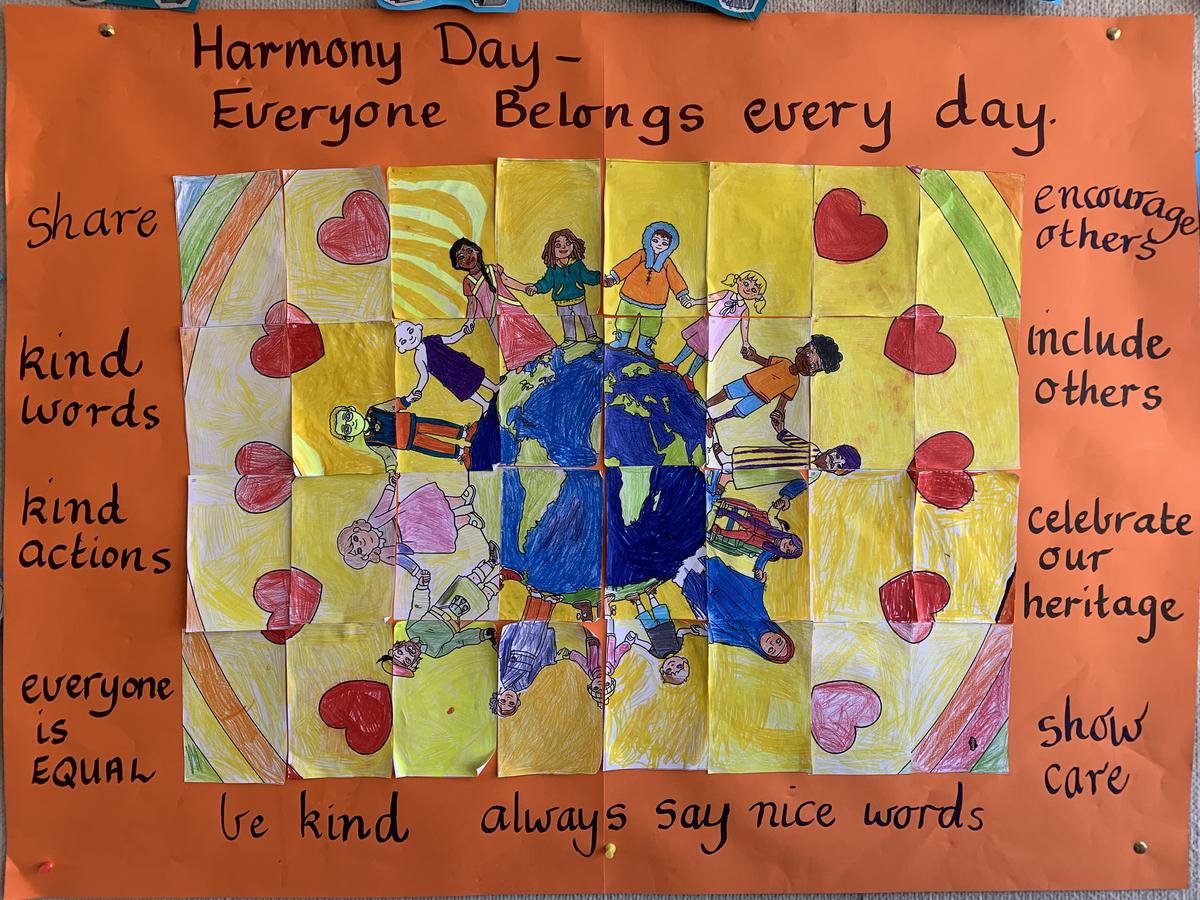 Harmony Day -
Everyone Belongs every day.
Share
kind
words
kind
actions
everyone
is
EQUAL
encourage
others
include
others
celebrate
our
heritage
show
care
be kind always say nice words